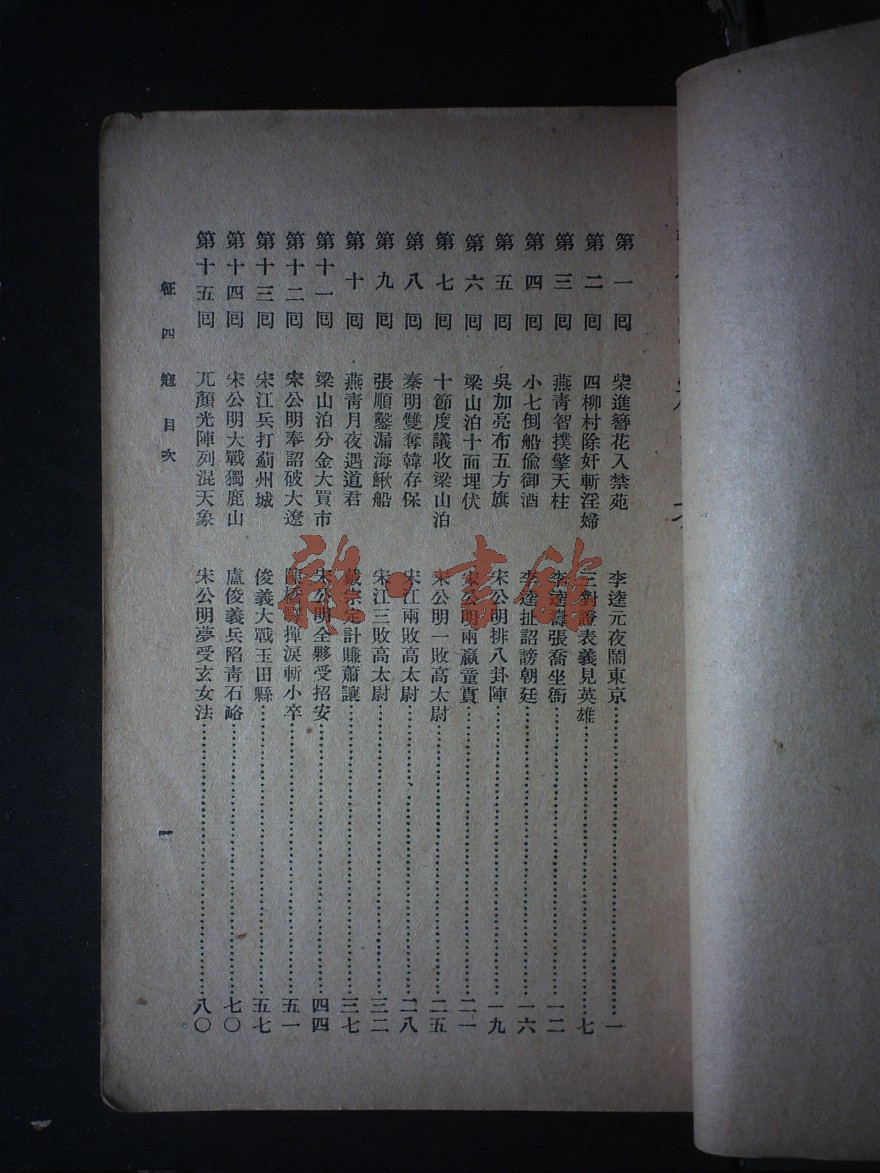 第一回 柴進簪花入禁苑 李逵元夜鬧東京 一
第二回 四柳村除奸斬淫婦 三對證表義見英雄 七
第三回 燕青智撲擎天柱 李逵壽張喬坐衙 一二
第四回 小七倒船偷御酒 李逵扯詔謗朝廷 一六
第五回 吳加亮布五方旗 宋公明排八卦陣 一九
第六回 梁山泊十面埋伏 宋公明兩贏童貫 二一
第七回 十節度議收梁山泊 宋公明一敗高太尉 二五
第八回 秦明雙奪韓存保 宋江兩敗高太尉 二八
第九回 張順鑿漏海鰍船 宋江三敗高太尉 三二
第十回 燕青月夜遇道君 戴宗定計賺蕭讓 三七
第十一回 梁山泊分金大買市 宋公明全夥受招安 四四
第十二回 宋公明奉詔破大遼 陳橋驛揮淚斬小卒 五一
第十三回 宋江兵打薊州城 俊義大戰玉田縣 五七
第十四回 宋公明大戰獨鹿山 盧俊義兵陷靑石峪 七〇
第十五回 兀顏光陣列混天象 宋公明夢受玄女法 八〇
征四寇 目次
一
雜·書館